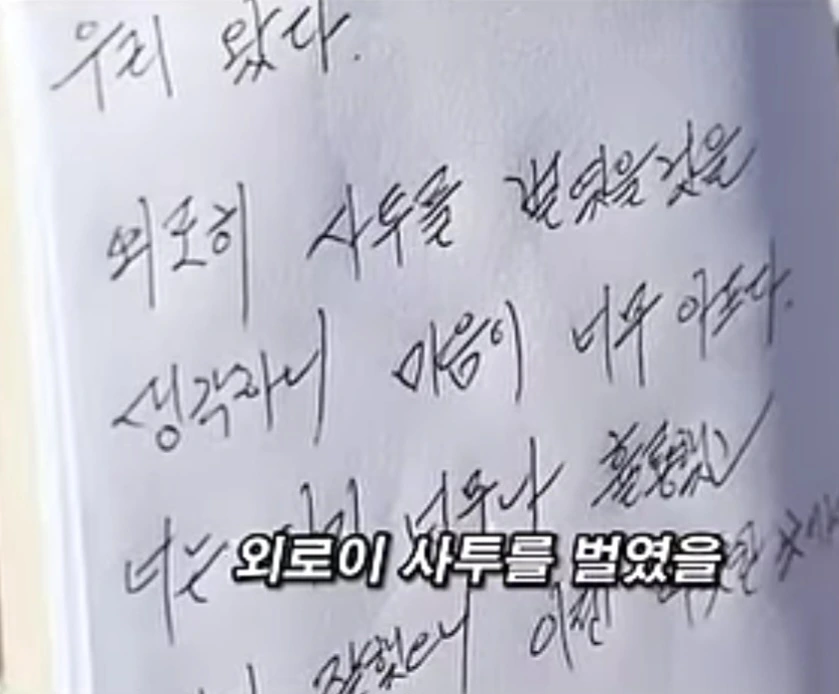 우리 왔다.
외로히 사투를 벌였을 것을
생각하니 마음이 너무 아프다.
너는 너무나
외로이 사투를 벌였을
잘했으니 이젠